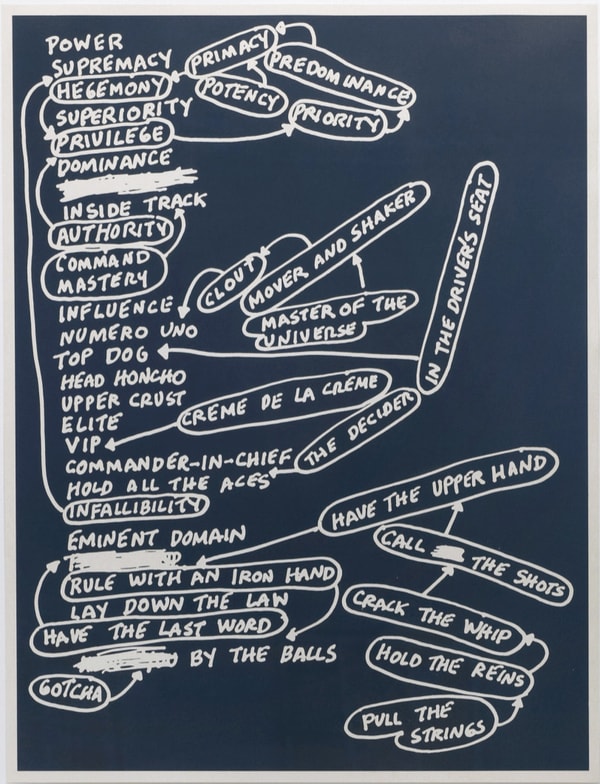 POWER
SUPREMACY
HEGEMONY
SUPERIORITY
PRIVILEGE
DOMINANCE
INSIDE TRACK
AUTHORITY
COMMAND
MASTERY
INFLUENCE
NUMERO UNO
TOP DOG
HEAD HONCHO
UPPER CRUST
ELITE
VIP
COMMANDER-IN-CHIEF
HOLD ALL THE ACES
INFALLIBILITY
EMINENT DOMAIN
RULE WITH AN IRON HAND
LAY DOWN THE LAW
HAVE THE LAST WORD
BY THE BALLS
GOTCHA
PRIMACY
PREDOMINANCE
POTENCY
PRIORITY
CLOUT
MOVER AND SHAKER
MASTER OF THE
UNIVERSE
IN THE DRIVER'S SEAT
CRÈME DE LA CRÈME
THE DECIDER
HAVE THE UPPER HAND
CALL THE SHOTS
CRACK THE WHIP
HOLD THE REINS
PULL THE
STRINGS